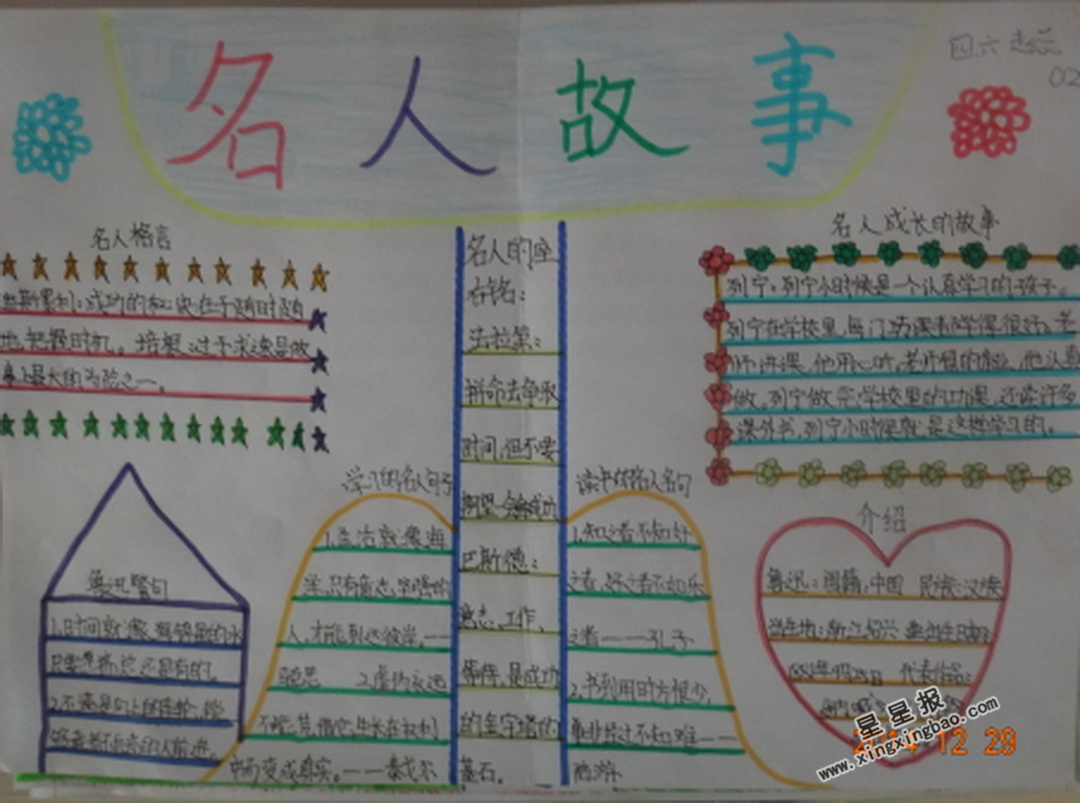 名人故事
四六
02
名人格言
成功的秘诀在于随时随
地把握时机。培根:过于求速是做
事上最大的危险之一。
鲁迅警句
1.时间就像海绵里的水
只要愿挤,总还是有的。
2.不满是向上的车轮,能
够载着不自满的人前进。
学习的名人句子
1.生活就像海
洋,只有意志坚强的
人,才能到达彼岸。——
马克思 2.虚伪永远
不能凭借它生长在权利
中而变成真实。——泰戈尔
名人的座
右铭:
法拉第:
拼命去争取
时间,但不要
期望一定会成功
巴斯德:
意志、工作、
等待,是成功
的金字塔的
基石。
读书的名人名句
1.知之者不如好
之者,好之者不如乐
之者——孔子
2.书到用时方恨少,
事非经过不知难——
陆游
名人成长的故事
列宁:列宁小时候是一个认真学习的孩子。
列宁在学校里,每门功课都学得很好。老
师讲课,他用心听,老师留的 他认真
做。列宁做完学校里的功课,还读许多
课外书,列宁小时候就是这样学习的。
介绍
鲁迅:国籍:中国 民族:汉族
出生地:浙江绍兴 出生日期:
1881年9月25日 代表作品:
星星报
www.xingxingbao.com
12 29